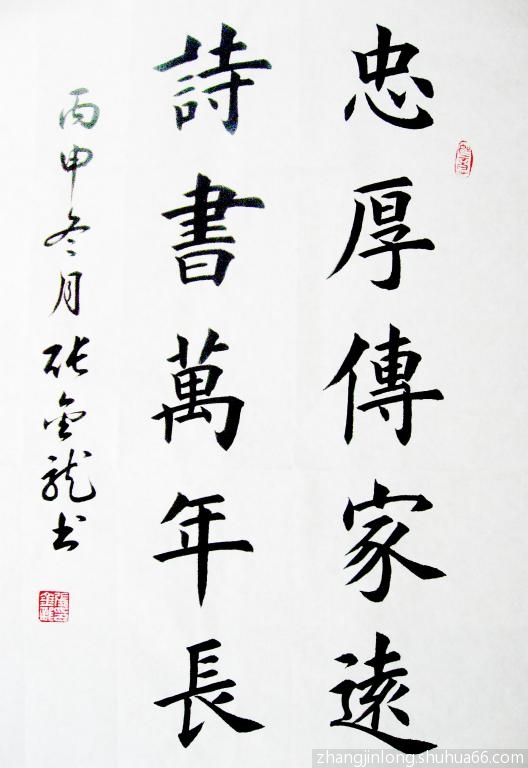 忠厚傳家遠
詩書萬年長
丙申冬月張金龍书
張金龍
zhangjinlong.shuhua66.com